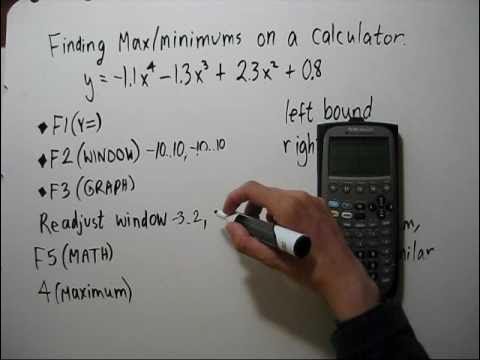 Finding Max/minimums on a calculator.
y = -1.1x⁴ - 1.3x³ + 2.3x² + 0.8
♦ F1 (Y=)
♦ F2 (WINDOW) -10..10, -10..10
♦ F3 (GRAPH)
Readjust window -3..2,
F5 (MATH)
4 (Maximum)
left bound